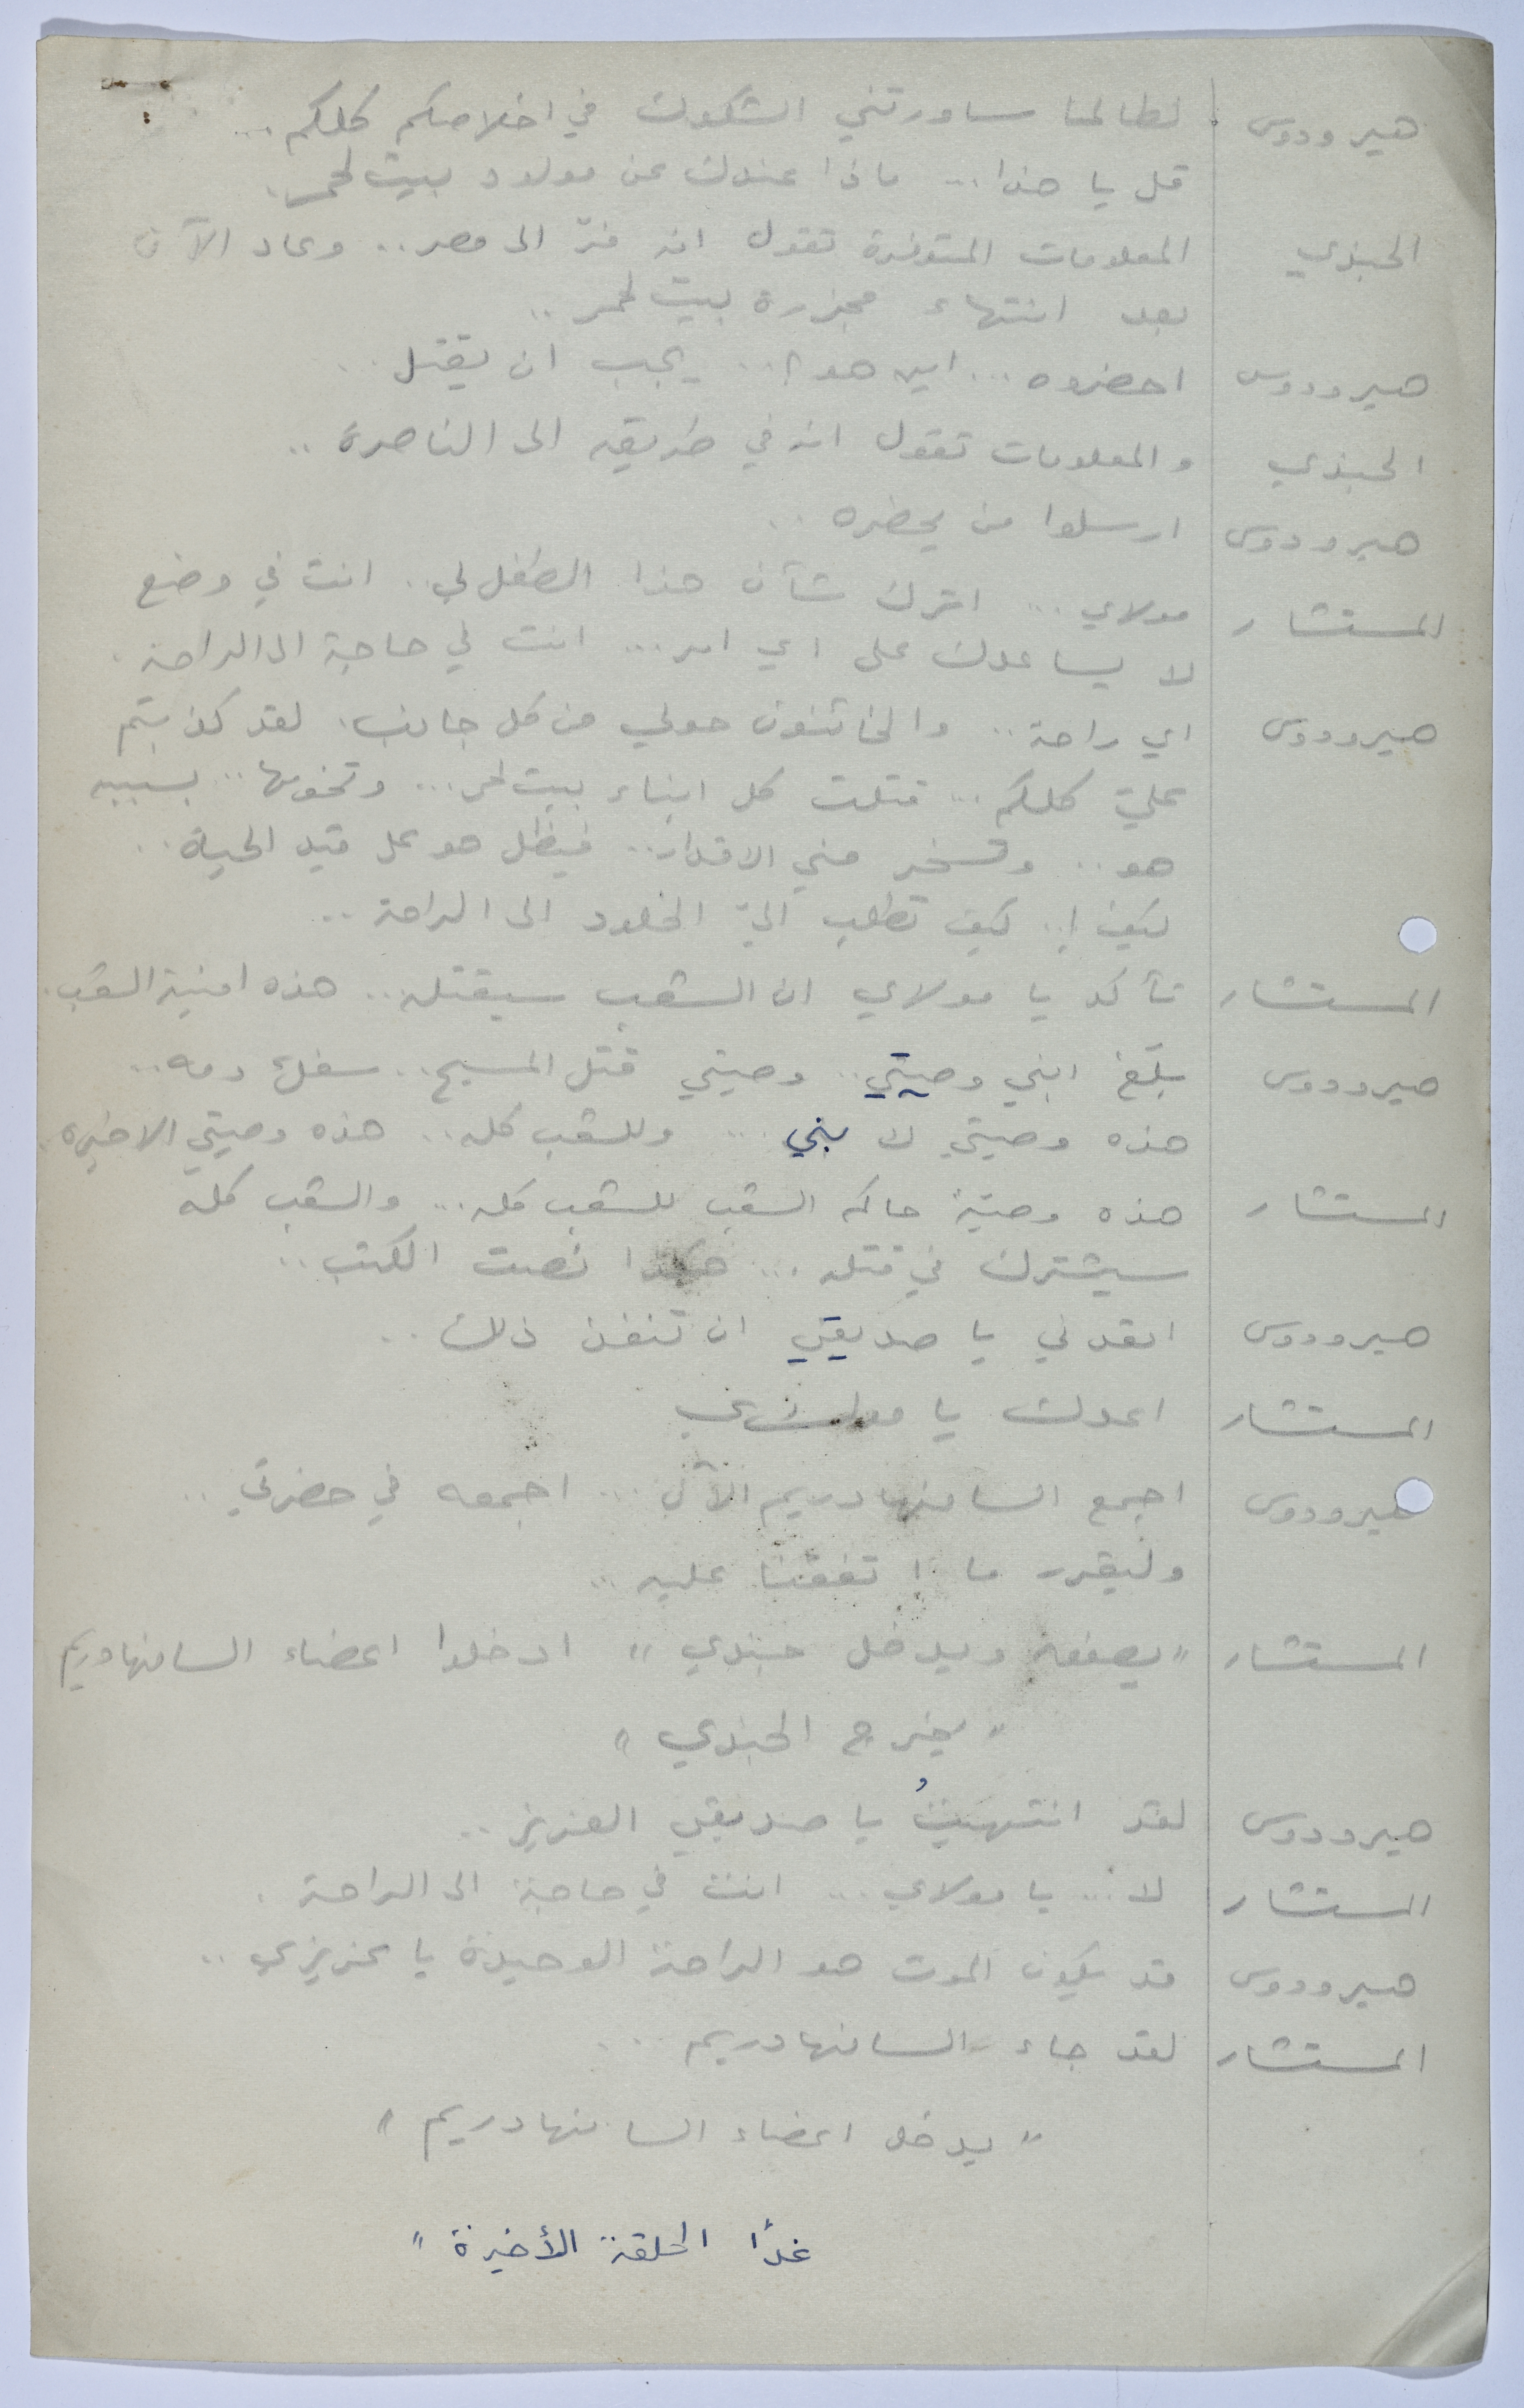 هيرودوس لطالما ساورتني الشكوك في اخلاصكم كلكم ...
قل يا هذا ... ماذا عندك عن مولود بيت لحم .
الجندي المعلومات المتوفرة تقول انه فرّ الى مصر .. وعاد الآن
بعد انتهاء مجزرة بيت لحم ..
هيرودوس احضروه ... اين هو ؟ .. يجب ان يقتل ..
الجندي والمعلومات تقول انه في طريقه الى الناصرة ..
هيرودوس ارسلوا من يحضره ..
المستشار مولاي ... اترك شأن هذا الطفل لي .. انت في وضع
لا يساعدك على اي امر ... انت في حاجة الى الراحة .
هيرودوس اي راحة .. والخائنون حولي من كل جانب . لقد كذبتم
عليّ كلكم ... قتلت كل ابناء بيت لحم ... وتخومها ... بسببه
هو .. وتسخر مني الاقدار .. فيظل هو على قيد الحياة ..
كيف ! .. كيف تطلب اليّ الخلود الى الراحة ..
المستشار تأكد يا مولاي ان الشعب سيقتله .. هذه امنية الشعب .
هيرودوس بلّغ ابني وصيتي .. وصيتي قتل المسيح .. سفك دمه ..
هذه وصيتي لابني ... وللشعب كله .. هذه وصيتي الاخيرة .
المستشار هذه وصيّة حاكم الشعب للشعب كله ... والشعب كله
سيشترك في قتله ... هكذا نصت الكتب ..
هيرودوس اتعدني يا صديقي ان تنفذ ذلك ..
المستشار اعدك يا مولاي
هيرودوس اجمع السانهادريم الآن ... اجمعه في حضرتي ..
وليقرر ما اتفقنا عليه ..
المستشار " يصفق ويدخل جندي " ادخلوا اعضاء السانهادريم
" يخرج الجندي "
هيرودوس لقد انتهيتُ يا صديقي العزيز ..
المستشار لا ... يا مولاي ... انت في حاجة الى الراحة .
هيرودوس قد يكون الموت هو الراحة الوحيدة يا عزيزي ..
المستشار لقد جاء السانهادريم ...
" يدخل اعضاء السانهادريم "
غدًا الحلقة الأخيرة "